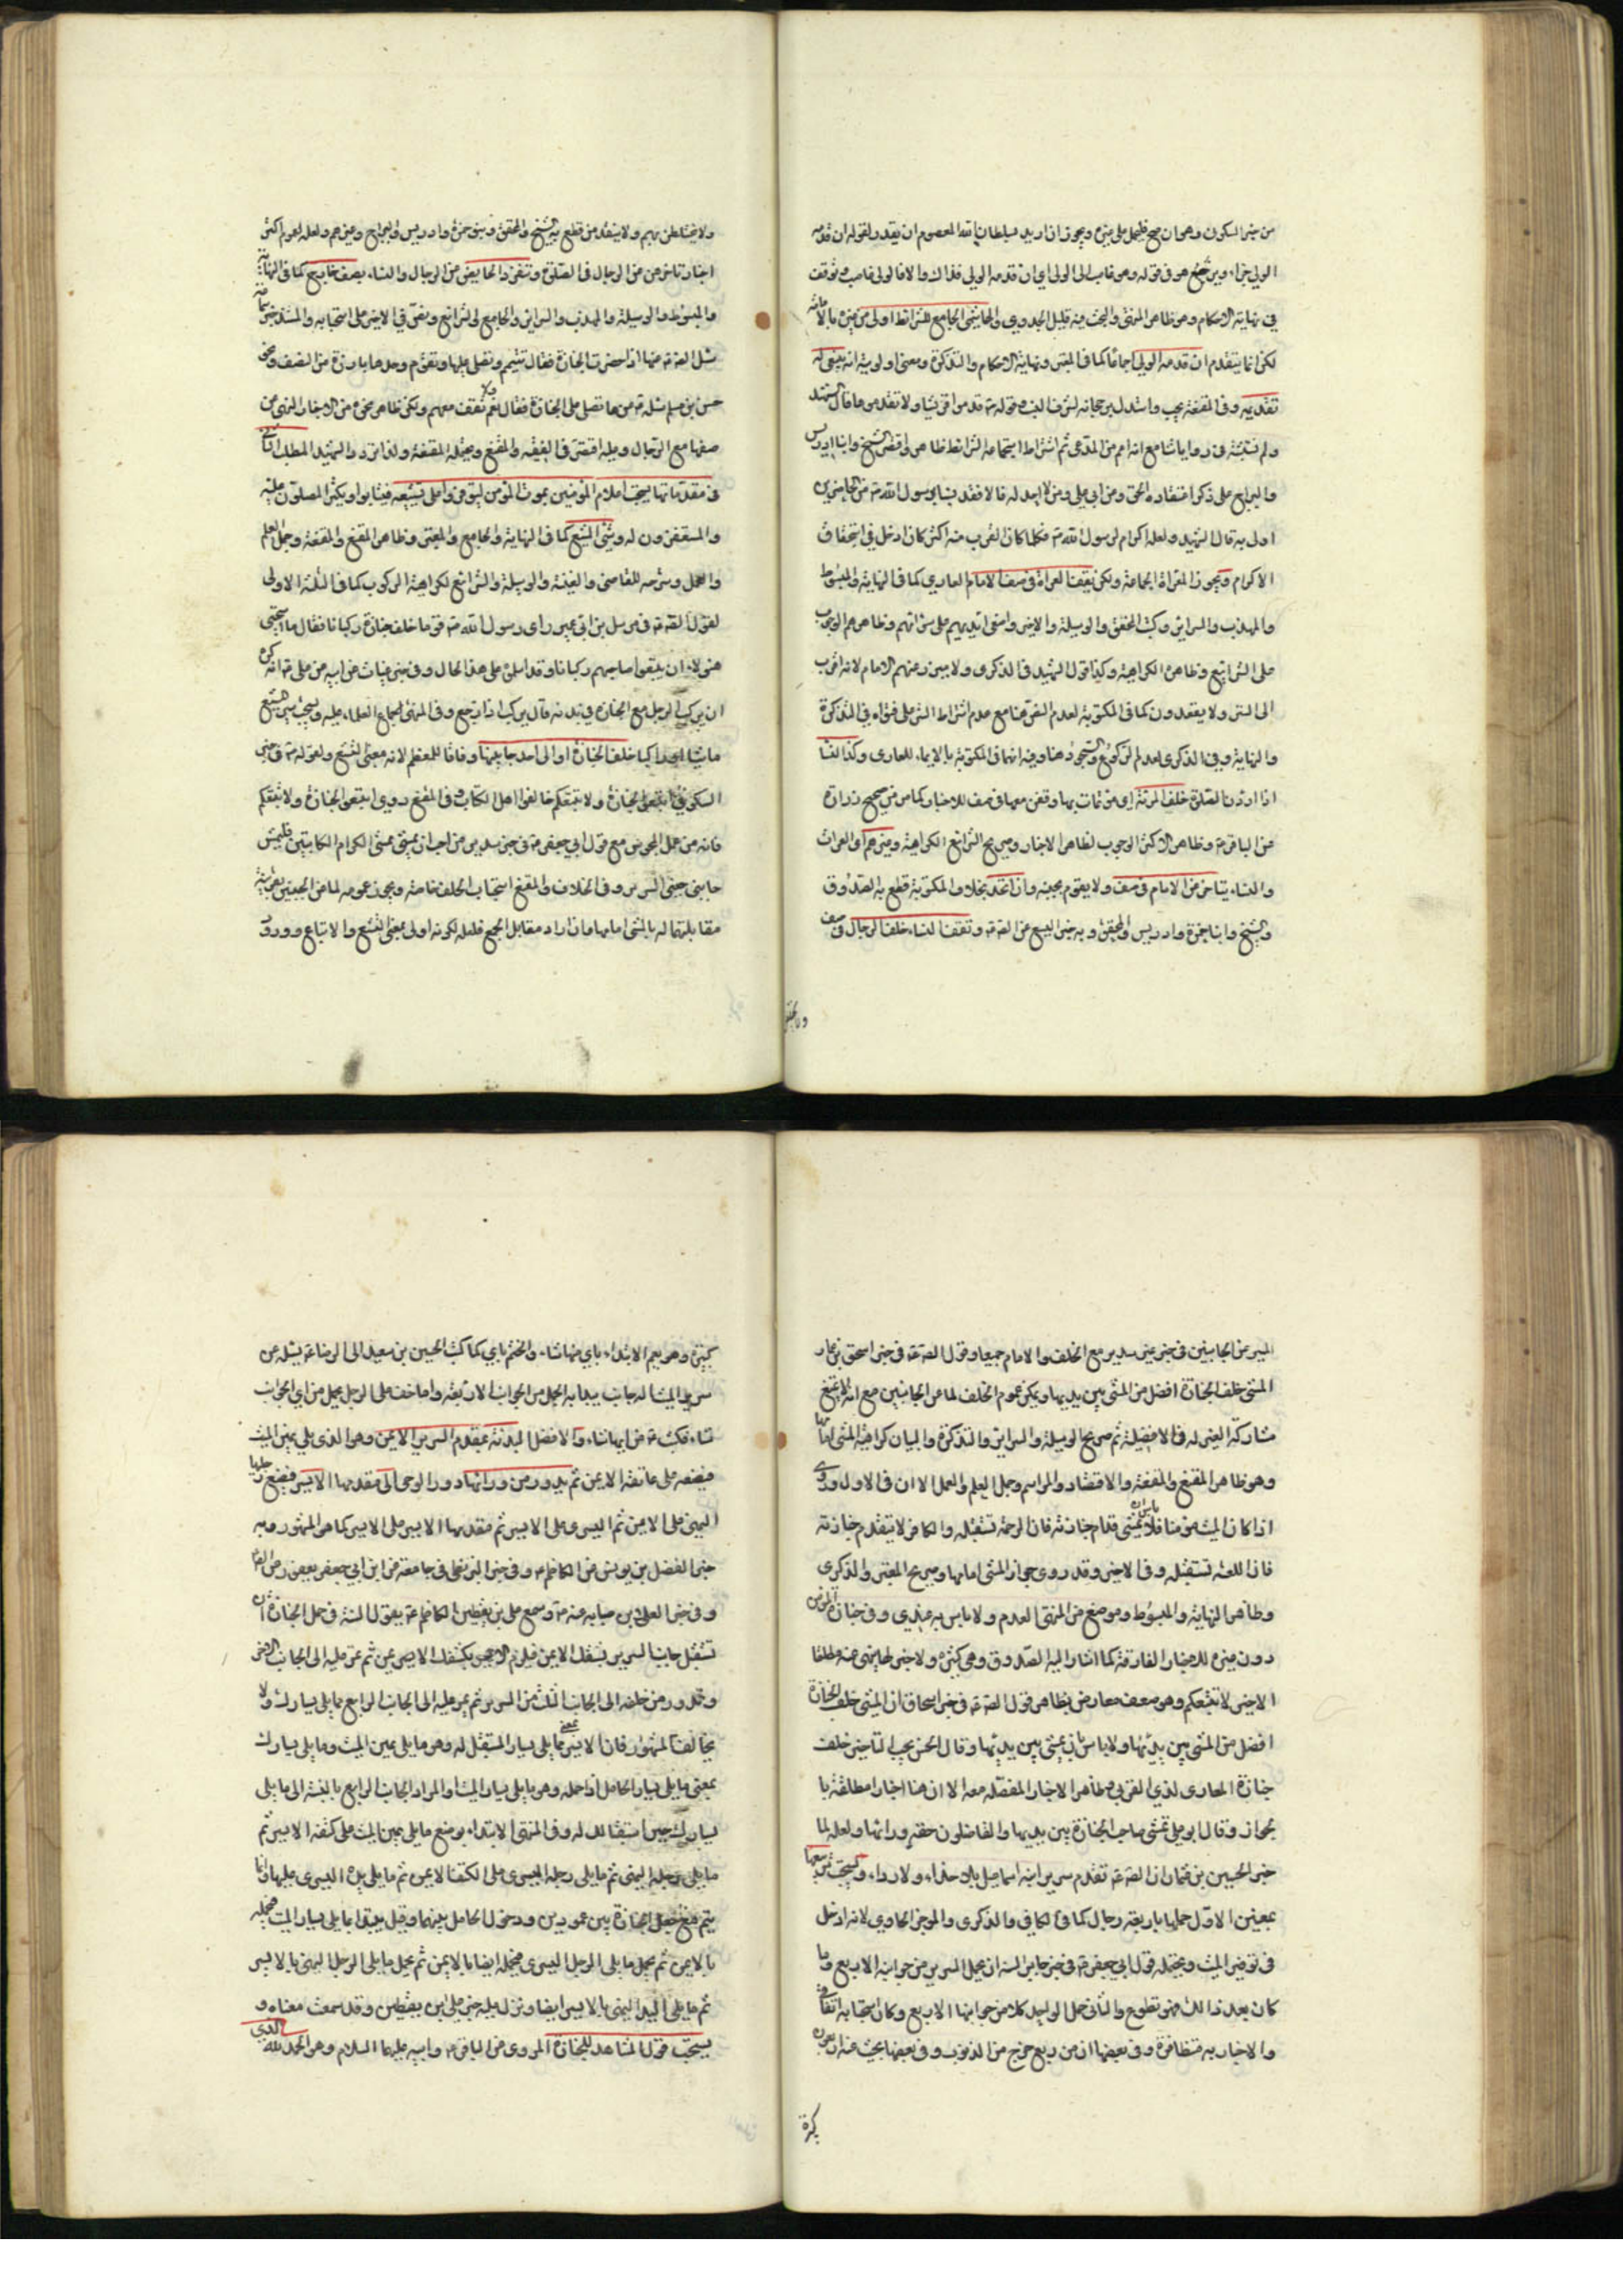 من خبر السكوني وهو ان صح فليحمل على غيره ويجوز ان اريد بسلطان الله المعصوم ان يقدر لقوله ان قدمه
الولي جزاء ويرجع هو في قوله وهو غاصب الى الولي اي ان قدمه الولي فذاك والا فالولي غاصب وتوقف
في نهاية الاحكام وهو ظاهر المنتهى والبحث فيه قليل الجدوى والهاشمي الجامع للشرائط اولى من غيره بالامامة
لكن انما يتقدم ان قدمه الولي اجماعا كما في المعتبر ونهاية الاحكام والتذكرة ومعنى اولويته انه ينبغي له
تقديمه وفي المقنعة يجب واستدل لرجحانه لشرف النسب وقوله ص قدموا قريشا ولا تقدموها قال الشهيد
ولم نثبته في رواياتنا مع انه اعم من المدعى ثم اشتراط اجتماعه الشرائط ظاهر واقتصر الشيخ وابنا ادريس
والبراج على ذكر اعتقاده الحق وعن ابي علي ومن لا احد له فالاقعد نسبا برسول الله ص من الحاضرين
اولى به قال الشهيد ولعله اكرام لرسول الله ص فكلما كان القرب منه اكثر كان ادخل في استحقاق
الاكرام ويجوز للعراة الجماعة ولكن يقف العراة في صف الامام العاري كما في النهاية والمبسوط
والمهذب والسرائر وكتب المحقق والوسيلة والاخير وامضى ايديهم على سوآتهم وظاهرهم الوجوب
على الشرايع وظاهره الكراهية وكذا قول الشهيد في الذكرى ولا يبرز عنهم الامام لانه اقرب
الى الستر ولا يقعدون كما في المكتوبة لعدم النص هنا مع عدم اشتراط الستر على فتواه في التذكرة
والنهاية وفي الذكرى لعدم الركوع والسجود هنا وفيه انهما في المكتوبة بالايماء للعاري وكذا النساء
اذا اردن الصلوة خلف المرئة اي من قامت بها وقفن معها في صف للاخبار كما مر من صحيح زرارة
عن الباقر ع وظاهر الاكثر الوجوب لظاهر الاخبار وصريح الشرائع الكراهية وغيرهم اي العراة
والنساء يتاخر عن الامام في صف ولا يقوم بجنبه وان اتحد بخلاف المكتوبة قطع به الصدوق
والشيخ وابنا حمزة وادريس والمحقق وبه خبر اليسع عن الصادق ع وتقف النساء خلف الرجال في صف
ولا يختلطن بهم ولا ينفذ من قطع به الشيخ والمحقق وبنو حمزة وادريس والبراج وغيرهم ولعله لعموم اكثر
اخبار تاخرهن عن الرجال في الصلوة وتنفرد الحايض عن الرجال والنساء بصف خارج كما في النهاية
والمبسوط والوسيلة والمهذب والسرائر والجامع لى شرائع ونص في الاخير على استحبابه والمستند خبر سماعة
سئل الصادق ع عنها اذا حضرت الجنازة فقال تتيمم وتصلي عليها وتقوم وحدها بارزة من الصف ونحو
حسن بن مسلم سئله ع عنها تصلي على الجنازة فقال نعم ولا تقف معهم ولكن ظاهره نحوه من الاخبار النهي عن
صفها مع الرجال وعليه اقتصر في الفقيه والمقنع ويحتمله المقنعة ولذا تردد الشهيد المطلب الثاني
في مقدماتها يستحب اعلام المؤمنين بموت المؤمن ليتوفروا على تشييعه فيثابوا ويكثر المصلون عليه
والمستغفرون له ومشي المشيع كما في النهاية والجامع والمعتبر وظاهر المقنع والمقنعة وجمل العلم
والعمل وشرحه للقاضي والغنية والوسيلة والشرائع لكراهية الركوب كما في الثلثة الاولى
لقول الصادق ع في مرسل بن ابي عمير رأى رسول الله ص قوما خلف جنازة ركبانا فقال ما استحيى
هؤلاء ان يتبعوا صاحبهم ركبانا وقد اسلموه على هذا الحال وفي خبر غياث عن ابيه عن علي ع انه كره
ان يركب الرجل مع الجنازة في بدئه وقال يركب اذا رجع وفي المنتهى اجماع العلماء عليه ويستحب مشي المشيع
ماشيا او راكبا خلف الجنازة او الى احد جانبيها وفاقا للمعظم لانه معنى التشيع ولقوله ص في خبر
السكوني اتبعوا الجنازة ولا تتبعكم خالفوا اهل الكتاب وفي المقنع روي اتبعوا الجنازة ولا تتبعكم
فانه من عمل المجوس مع قول ابي جعفر ع في خبر سدير من احب ان يمشي ممشى الكرام الكاتبين فليمش
جانبي جنبي السرير وفي الخلاف والمقنع استحباب الخلف خاصة ويجوز عمومه لما عن الجنبين بقرينة
مقابلتهما له بالمشي امامها فان اراد مقابل الجميع فلعله لكونه اولى بمعنى التشيع والاتباع وورود
السير عن الجانبين في خبر عن سدير مع الخلف والامام جميعا وقول الصادق ع في خبر اسحق بن عمار
المشي خلف الجنازة افضل من المشي بين يديها ويمكن عموم الخلف لما عن الجانبين مع انه لا يمنع
مشاركة الغير له في الافضلية ثم صريح الوسيلة والسرائر والتذكرة والبيان كراهية المشي امامها
وهو ظاهر المقنع والمقنعة والاقتصاد والمراسم وجمل العلم والعمل الا ان في الاول وروي
اذا كان الميت مؤمنا فلا باس ان يمشي قدام جنازته فان الرحمة تستقبله والكافر لا يتقدم جنازته
فان اللعنة تستقبله وفي الاخير وقد روي جواز المشي امامها وصريح المعتبر والذكرى
وظاهر النهاية والمبسوط وموضع من المنتهى العدم ولا باس به عندي وفي جنازة المؤمن
دون غيره للاخبار الفارقة كما اشار اليه الصدوق وهي كثيرة ولا خبر لها ينهى عنه مطلقا
الا خبر لا تتبعكم وهو مع ضعفه معارض بظاهر قول الصادق ع في خبر اسحاق ان المشي خلف الجنازة
افضل من المشي بين يديها ولا باس ان يمشي بين يديها وقال الحسن يجب التاخر خلف
جنازة المعادي لذي القربى لظاهر الاخبار المفصلة معه الا ان هنا اخبارا مطلقة با
لجواز وقال ابو علي يمشي صاحب الجنازة بين يديها والقاضون حقه ورائها ولعله لما
خبر الحسين بن عثمان ان الصادق ع تقدم سرير ابنه اسماعيل بلا حذاء ولا رداء ويستحب تربيعها
بمعنيين الاول حملها باربعة رجال كما في الكافي والذكرى والموجز الحاوي لانه ادخل
في توقير الميت ويحتمله قول ابي جعفر ع في خبر جابر السنة ان يحمل السرير من جوانبه الاربع وما
كان بعد ذلك فهو تطوع والثاني حمل الواحد كلا من جوانبها الاربع وكان استحبابه اتفاقي
والاخبار به متظافرة وفي بعضها ان من ربع خرج من الذنوب وفي بعضها يمحى عنه اربعون
كبيرة وهو يعم الابتداء باي منها شاء والختم باي كما كتب الحسين بن سعيد الى الرضا ع يسئله عن
سرير الميت له جانب يبدا به الحمل من الجوانب الاربعة واما خف على الرجل يحمل من اي الجوانب
شاء فكتب ع من ايها شاء والافضل البدئة بمقدم السرير الايمن وهو الذي يلي يمين الميت
فيضعه على عاتقه الايمن ثم يدور من ورائها دور الرحى الى مقدمها الايسر فيضع رجلها
اليمنى على الايمن ثم اليسرى على الايسر ثم مقدمها الايسر على الايسر كما هو المشهور وبه
خبر الفضل بن يونس عن الكاظم ع وفي خبر البزنطي في جامعه عن ابن ابي يعفور عن الصادق
وفي خبر العلاء بن سيابة عنه ع وسمع علي بن يقطين الكاظم ع يقول السنة في حمل الجنازة ان
تستقبل جانب السرير بشقك الايمن فتلزم الايسر بكتفك الايمن ثم تمر عليه الى الجانب الاخر
وتدور من خلفه الى الجانب الثالث من السرير ثم تمر عليه الى الجانب الرابع مما يلي يسارك ولا
يخالف المشهور فان الايسر بمعنى ما يلي يسار المستقبل له وهو ما يلي يمين الميت وما يلي يسارك
بمعنى ما يلي يسار الحامل اذا حمله وهو ما يلي يسار الميت او المراد الجانب الرابع بالنسبة الى ما يلي
يسارك حين استقبالك له وفي المنتهى الابتداء بوضع ما يلي يمين الميت على كتفه الايسر ثم
ما يلي رجله اليمنى ثم ما يلي رجله اليسرى على الكتف الايمن ثم ما يلي يده اليسرى عليها وانما
يتم مع حمل الجنازة بين عمودين ودخول الحامل بينهما وقيل يبتدأ بما يلي يسار الميت فيحمله
بالايمن ثم يحمل ما يلي الرجل اليسرى فيحمله ايضا بالايمن ثم يحمل ما يلي الرجل اليمنى بالايسر
ثم ما يلي اليد اليمنى بالايسر ايضا ونزل عليه خبر علي بن يقطين وقد سمعت معناه و
يستحب قول المشاهد للجنازة المروي عن الباقر ع وابيه عليهما السلام وهو الحمد لله الذي